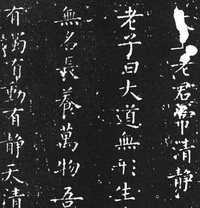 老君常清静
老子曰大道無形生
無名長養萬物吾
有濁有動有静天清